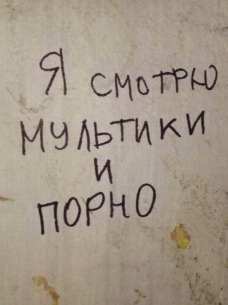 Я СМОТРЮ
МУЛЬТИКИ
И
ПОРНО